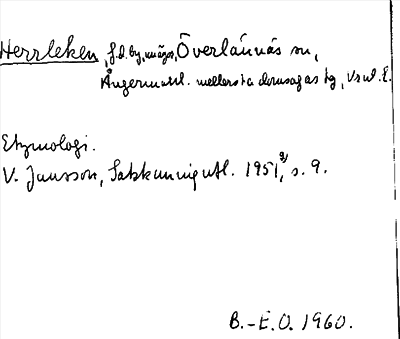 Herrleken, f.d. by, någs, Överlännäs sn,
Ångermanl. mellersta domsagas tg, Vnl. L.
Etymologi.
V. Jansson, Sakkunnigutl. 1951, s. 9.
B.-E.O. 1960.